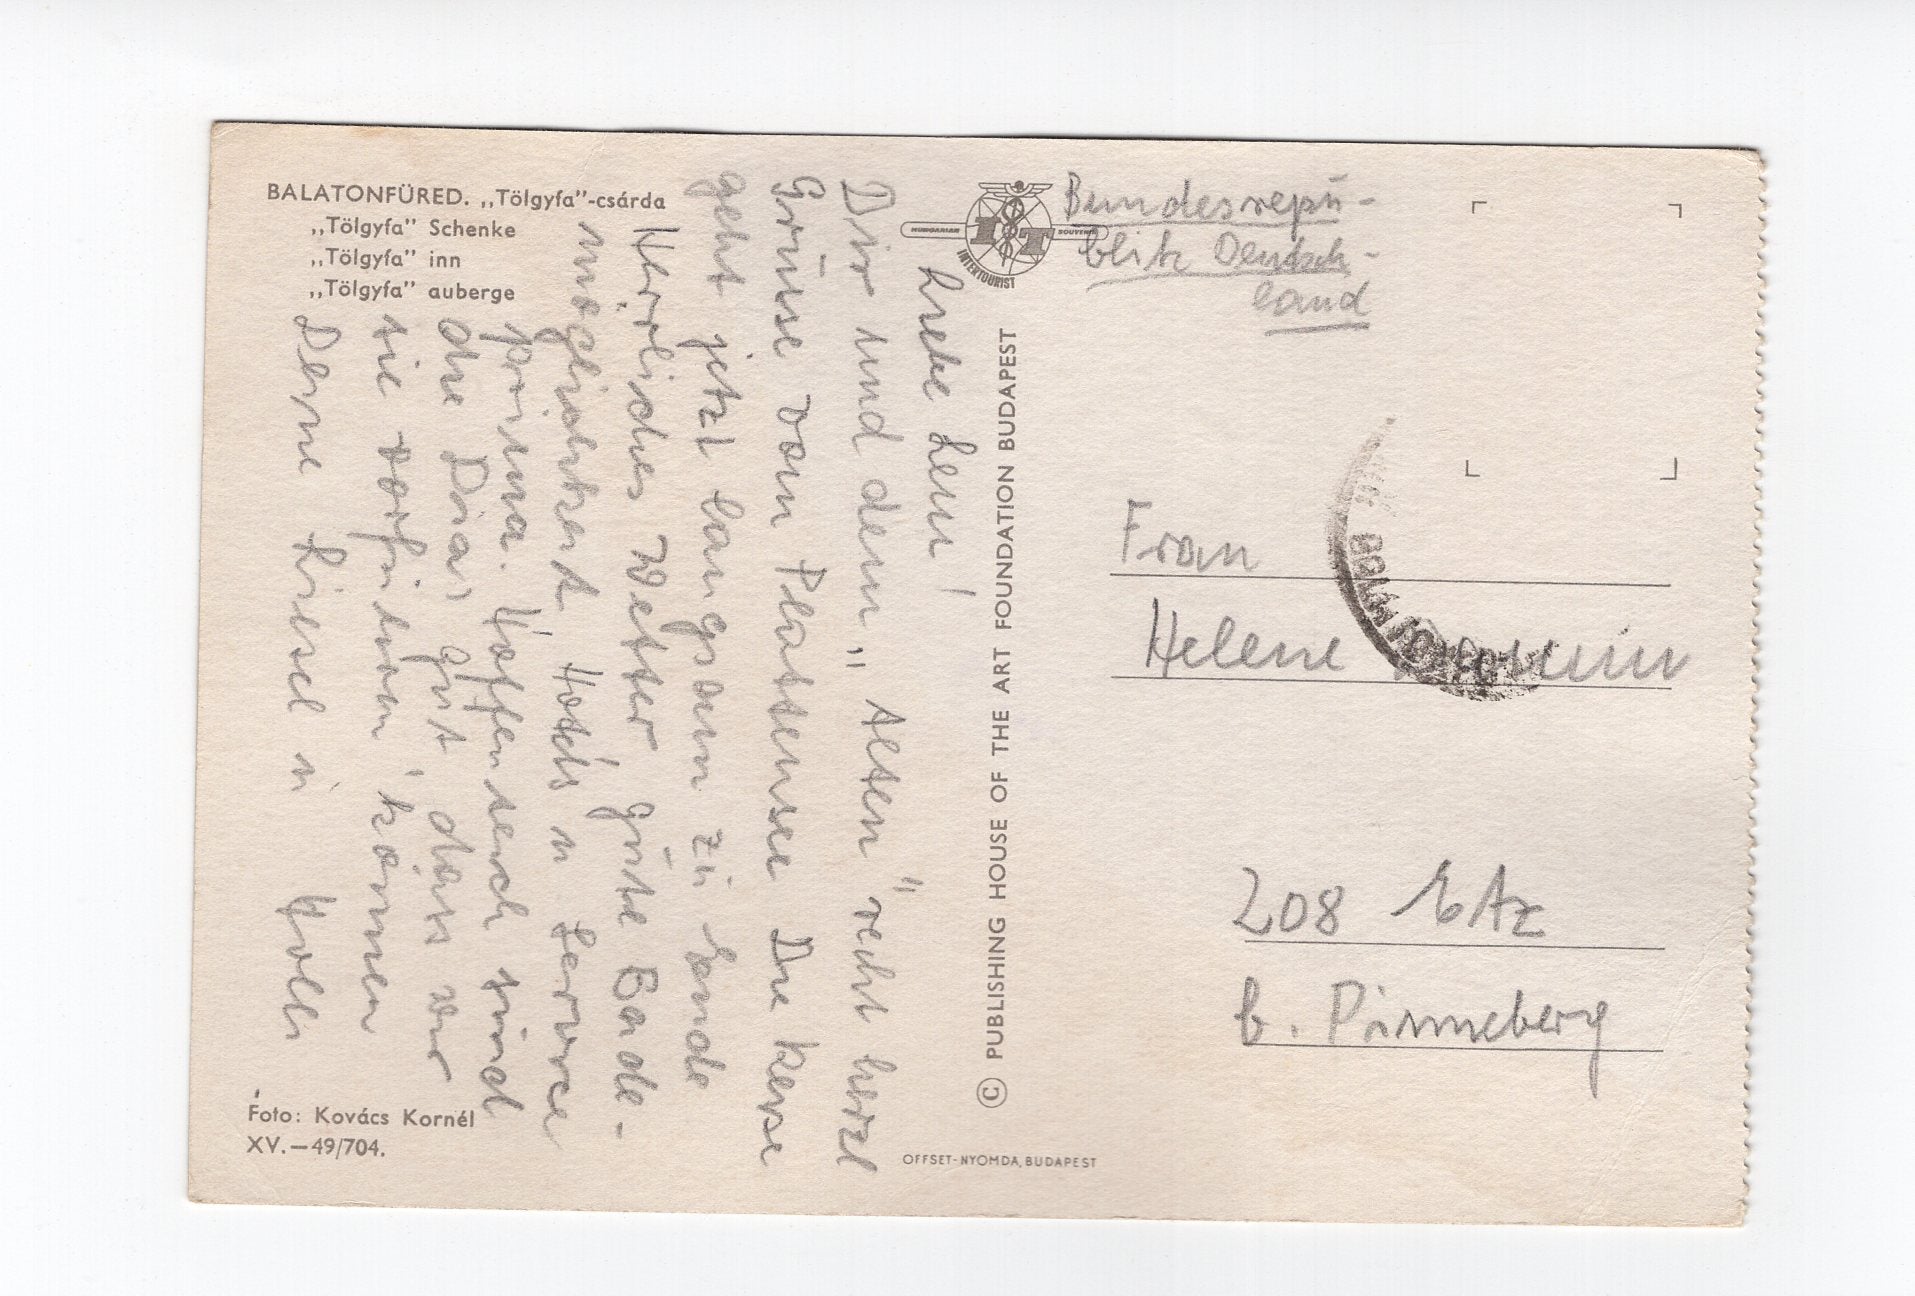 BALATONFÜRED. „Tölgyfa”-csárda
„Tölgyfa” Schenke
„Tölgyfa” inn
„Tölgyfa” auberge
Liebe Leni!
Dir und dem „Alten” recht herzl
Grüsse vom Plattensee Die Reise
geht jetzt langsam zu Ende
Herrliches Wetter, gute Bade-
möglichkeit Hotels u Service
prima. Hoffentlich sind
die Dias gut, dass wir
sie vorführen können
Deine Liesel u
Foto: Kovács Kornél
XV.—49/704.
HUNGARIAN SOUVENIR
INTERTOURIST
© PUBLISHING HOUSE OF THE ART FOUNDATION BUDAPEST
OFFSET-NYOMDA, BUDAPEST
Bundesrepu-
blik Deutsch-
land
Frau
Helene
208
b. Pinneberg